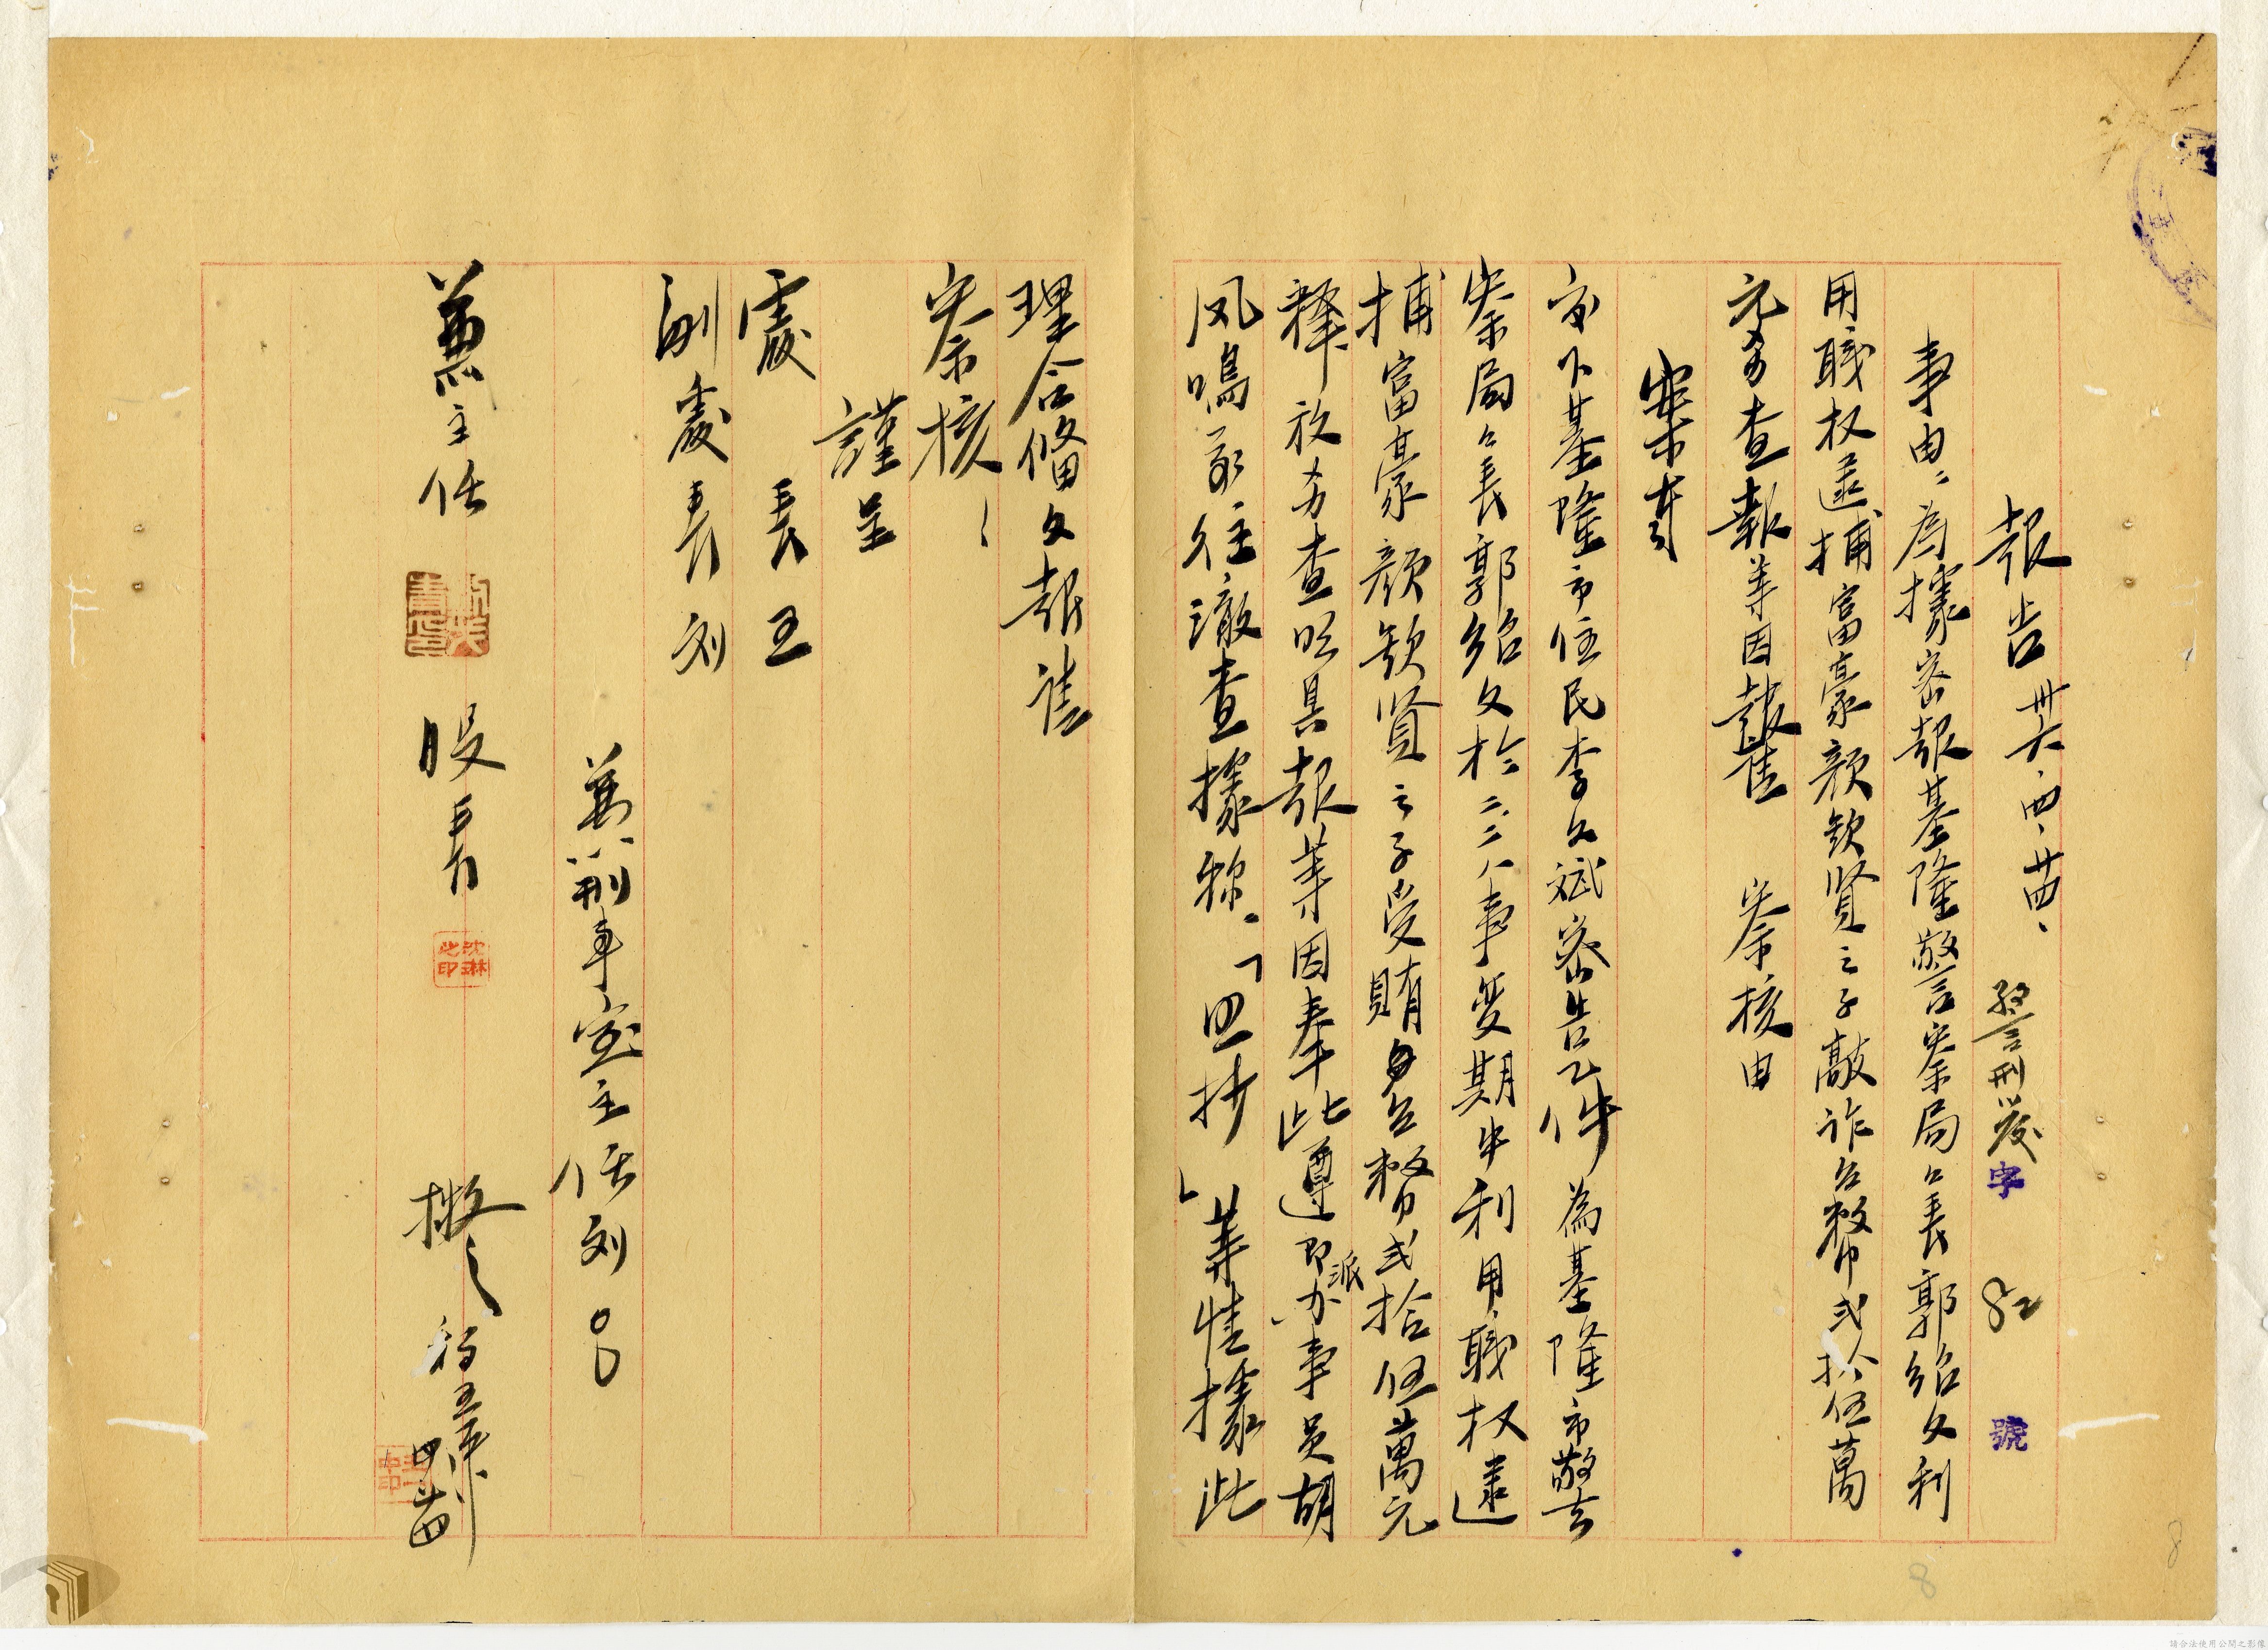 報告 卅六、四、廿四、 警刑發字 82 號
事由：為據密報基隆警察局々長郭紹文利
用職权逮捕富豪顏欽贤之子敲诈台幣弍拾伍萬
元務查報等因報请 察核由
案奉
交下基隆市住民李文斌密告乙件 為基隆市警
察局々長郭紹文於二二八事变期中利用職权逮
捕富豪顏欽贤之子受賄台幣弍拾伍萬元
釋放务查明具報等因奉此遵即派办事员胡
凤鳴前往澈查據称：「照抄」等情據此
理合俻文報请
察核、
謹呈
處長王
副處長刘
兼刑事室主任刘
兼主任 股長 沈琳之印 擬 稿 四廿四